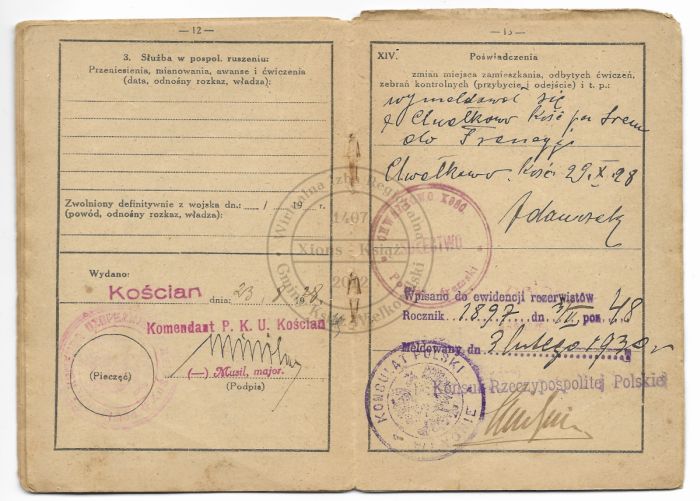 — 12 —
3. Służba w pospol. ruszeniu:
Przeniesienia, mianowania, awanse i ćwiczenia
(data, odnośny rozkaz, władza):
Zwolniony definitywnie z wojska dn.: / 19 r.
(powód, odnośny rozkaz, władza):
Wydano:
Kościan
dnia: 23/8 1928
Komendant P. K. U. Kościan
(—) Musil, major.
(Podpis)
(Pieczęć)
— 13 —
XIV. Poświadczenia
zmian miejsca zamieszkania, odbytych ćwiczeń,
zebrań kontrolnych (przybycie i odejście) i t. p.:
wymeldował się
z Chwałkowo Kość pow Srem
do Francyji
Chwałkowo Kość 29.X.28
Adamczak
CHWAŁKOWO KOŚC
Wpisano do ewidencji rezerwistów
Rocznik 1897 dn. poz. 48
Meldowany dn 3 lutego 1930 r
Konsul Rzeczypospolitej Polskiej
KONSULAT POLSKI
Wirtualna Izba Regionalna
1407
Xions - Książ
Gmina Książ Wielkopolski